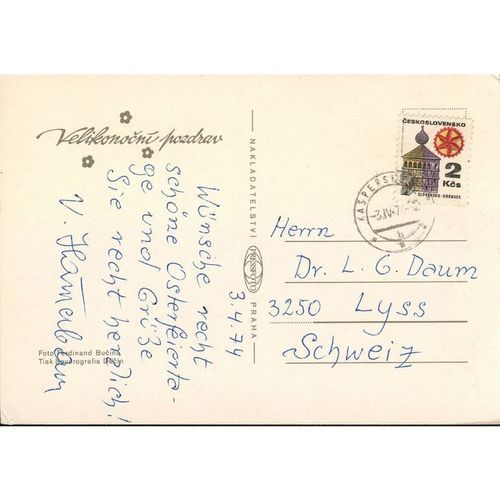 Velikonoční pozdrav
Wünsche recht
schöne Osterfeierta-
ge und Grüße
Sie recht herzlich!
3.4.74
Foto Ferdinand Bučina
Tisk Severografia Děčín
NAKLADATELSTVÍ
PRESSFOTO
PRAHA
ČESKOSLOVENSKO
2
Kčs
SLOVENSKO-HRONSEK
-3.IV.7
b
Herrn
Dr. L. G. Daum
3250 Lyss
Schweiz